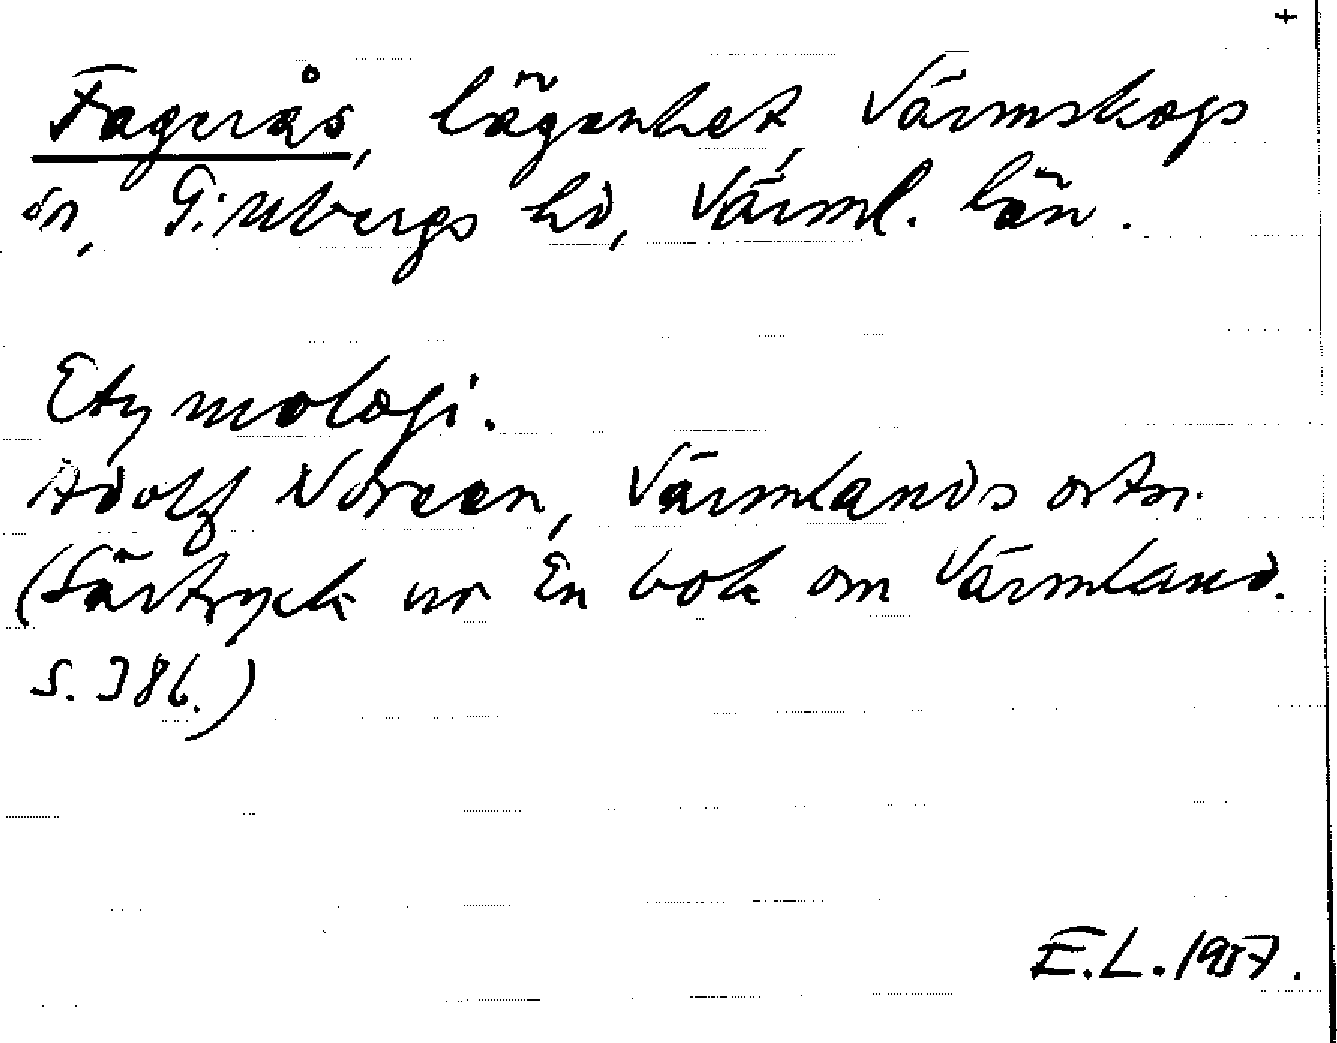 +
Fagerås, lägenhet, Värmskogs
sn, Gillbergs hd, Värml. län.
Etymologi.
Adolf Noreen, Värmlands ortn.
(Särtryck ur En bok om Värmland.
S. 386.)
E.L. 1957.